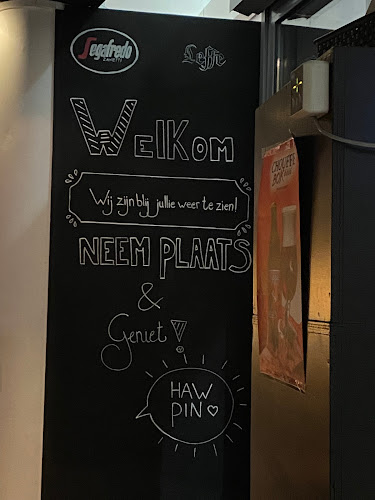 Segafredo
ZANETTI
Leffe
WELKOM
Wij zijn blij jullie weer te zien!
NEEM PLAATS
&
Geniet!
HAW
PIN ♡
CHOUFFE
BOK